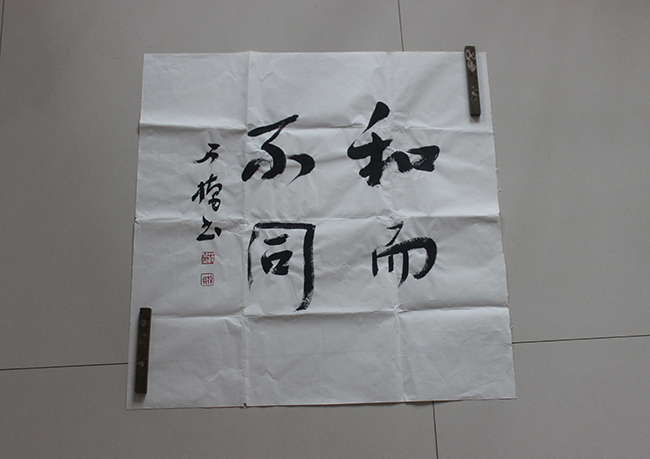 和而
不同
石橋书